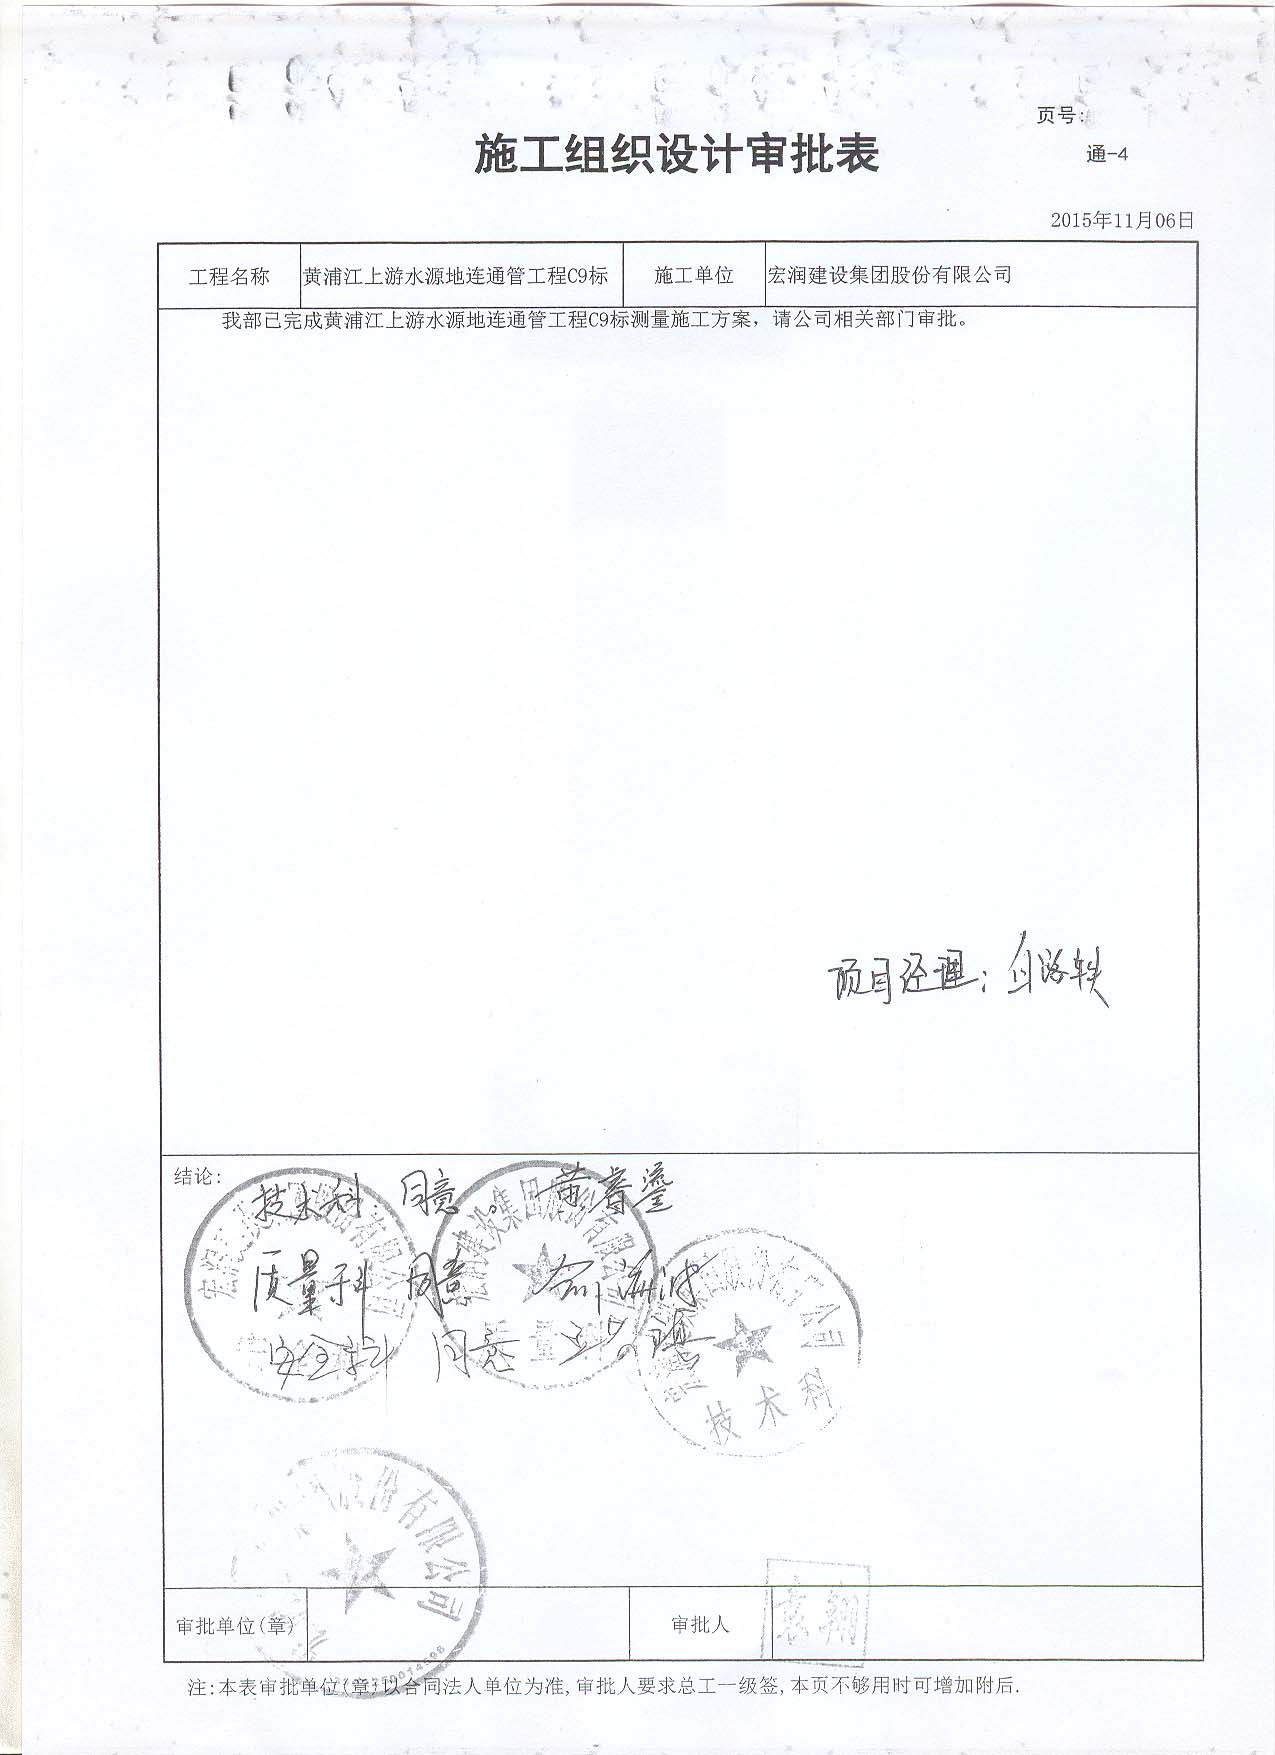 页号:
施工组织设计审批表
通-4
2015年11月06日
工程名称 黄浦江上游水源地连通管工程C9标 施工单位 宏润建设集团股份有限公司
我部已完成黄浦江上游水源地连通管工程C9标测量施工方案，请公司相关部门审批。
项目经理：
结论:
技术科 同意。
质量科 同意 俞海波
安全科 同意
技术科
股份有限公司
审批单位(章) 审批人 袁翔
注:本表审批单位(章)以合同法人单位为准,审批人要求总工一级签,本页不够用时可增加附后.